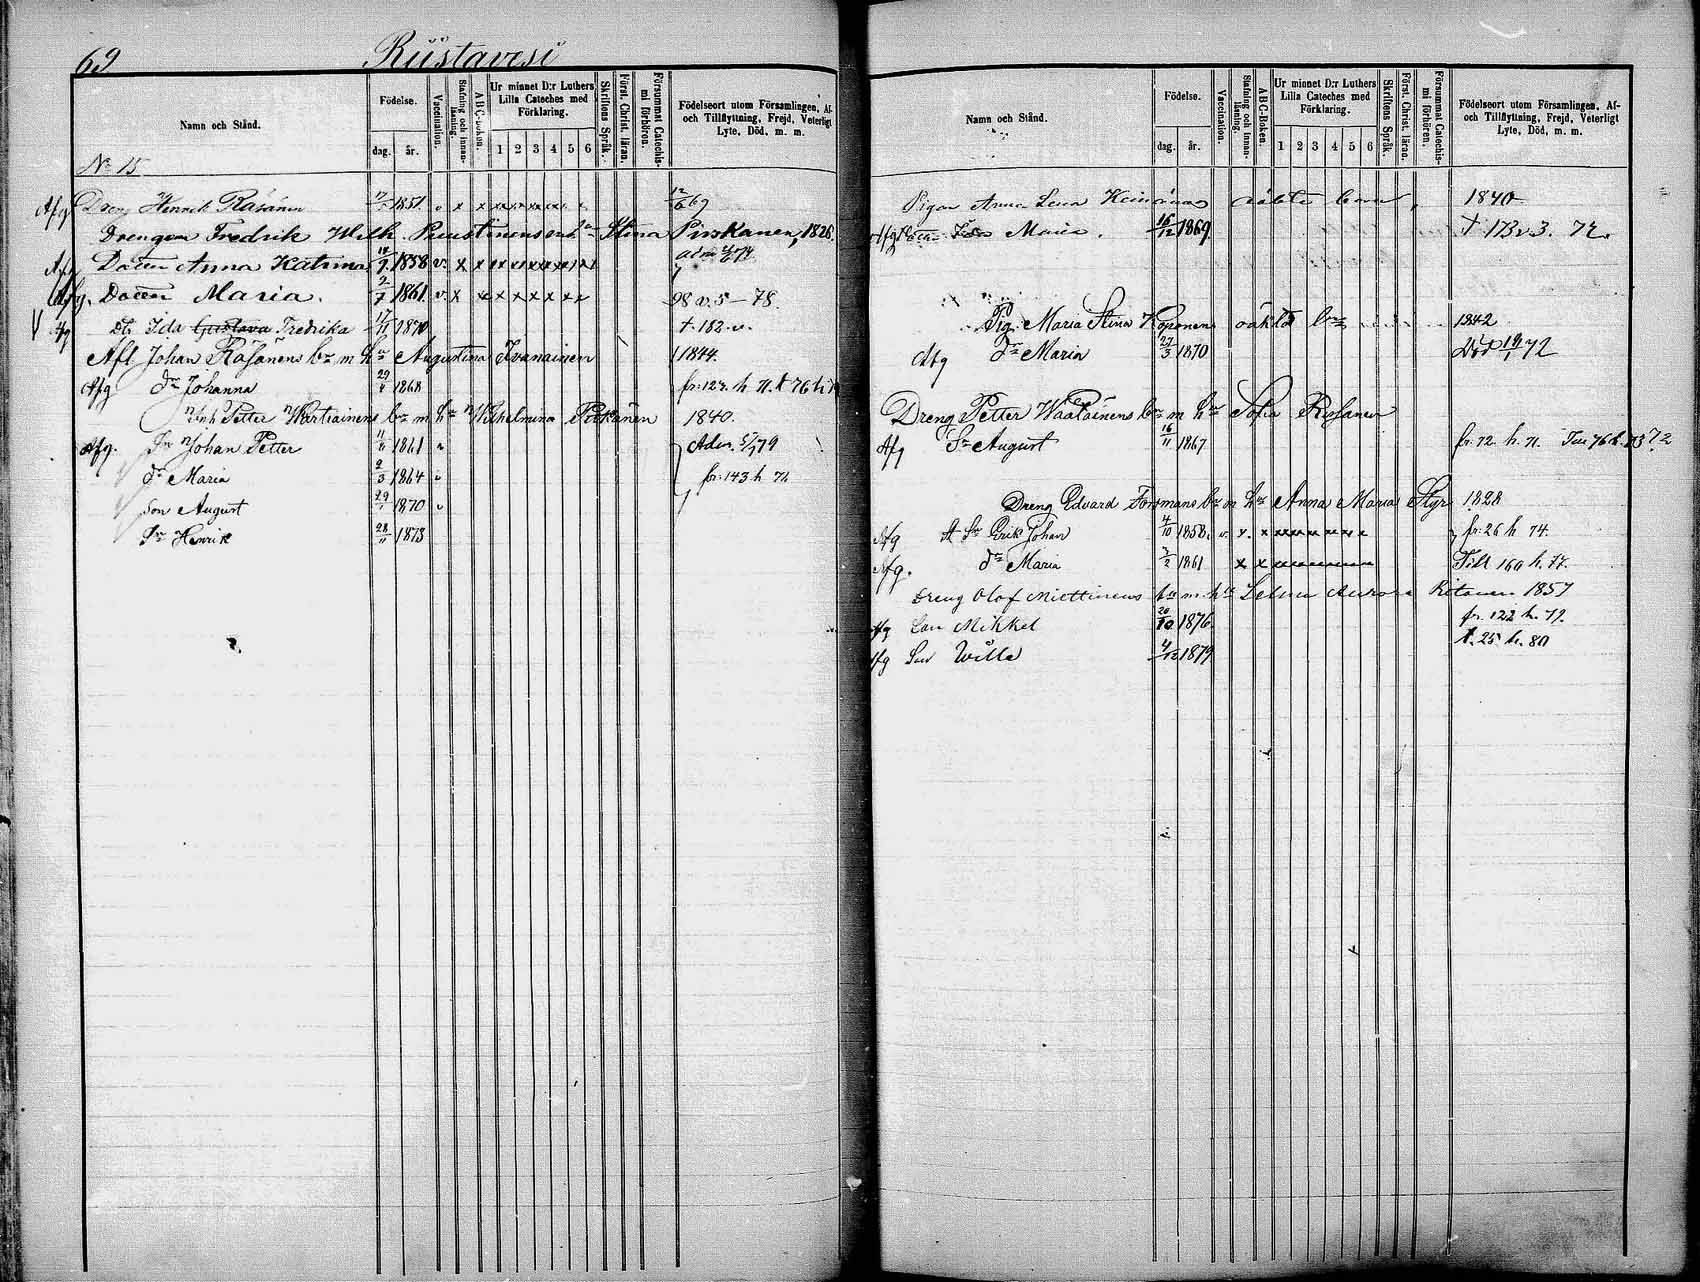 69 Riistavesi
Namn och Stånd.
Födelse.
dag. år.
Vaccination.
Stafning och innan-läsning.
A B C-boken.
Ur minnet D:r Luthers Lilla Cateches med Förklaring.
1 2 3 4 5 6
Skriftens Språk.
Först. Christ. läran.
Försummat Catechis-mi förhören.
Födelseort utom Församlingen, Af- och Tillflyttning, Frejd, Veterligt Lyte, Död, m. m.
No 15
Afg Dreng Henrik Räsänen 1851 v x x 12/6 69
Drengen Fredrik Wilh. Puustinens enk Stina Pirskanen, 1826.
Afg Dottren Anna Katrina 1858 v. x x adm
Afg. Dottren Maria. 2/7 1861 v. x x x x x x x x 98 v. 5 – 78
V Afg dtr Ida Gustava Fredrika 17/11 1870 t. 182 v.
Afl Johan Räsänens bn m hu Augustina Ivanainen 1844.
Afg dr Johanna 29 1868 fr: 127. h 71. t 76 h
Inh Petter Wartiainens bn m hu Wilhelmina Pirkanen 1840.
Afg. Sn Johan Petter 11 1861 v Adm. 79
dr Maria 2/3 1864 v fr: 143 h 72
Son August 29 1870 v
Sn Henrik 28/11 1873
Namn och Stånd.
Födelse.
dag. år.
Vaccination.
Stafning och innan-läsning.
A B C-Boken.
Ur minnet D:r Luthers Lilla Cateches med Förklaring.
1 2 3 4 5 6
Skriftens Språk.
Först. Christ. läran.
Försummat Catechis-mi förhören.
Födelseort utom Församlingen, Af- och Tillflyttning, Frejd, Veterligt Lyte, Död, m. m.
Pigan Anna Lena oäkta barn, 1840
Afg Maria. 16/12 1869. t 173 v 3. 72.
Pig. Maria Stina Koponens oäkta bn 1842
Afg dr Maria 27/3 1870 Död 72
Dreng Petter Waatainens bn m hu Sofia Rissanen
Afg Sn August 16/11 1867 fr. 72. h. 71.
Dreng Edvard Forsmans bn m hu Anna Maria Styr 1828
Afg Sn Erik Johan 4/10 1858. v. x. x fr: 26 h 74.
Afg. dr Maria 1861 x x Till 160 h. 77.
Dreng Olof Miettinens bn m. hu Selma Aurora Ritonen 1857
Afg Son Mikkel 20/10 1876. fr. 122 h. 79.
Afg Son Wille 4/12 1879 t. 25 h. 80